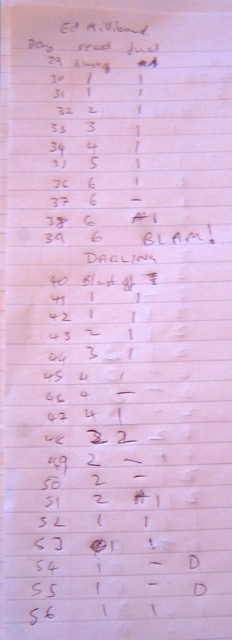 Ed Miliband
Day speed fuel
29 blast off
30 1 1
31 1 1
32 2 1
33 3 1
34 4 1
35 5 1
36 6 1
37 6 -
38 6 1
39 6 BLAM!
DARLING
40 Blast off
41 1 1
42 1 1
43 2 1
44 3 1
45 4 1
46 4 -
47 4 1
48 2 2 -
49 2 -
50 2 -
51 2 1
52 1 1
53 1 1
54 1 - D
55 1 - D
56 1 1